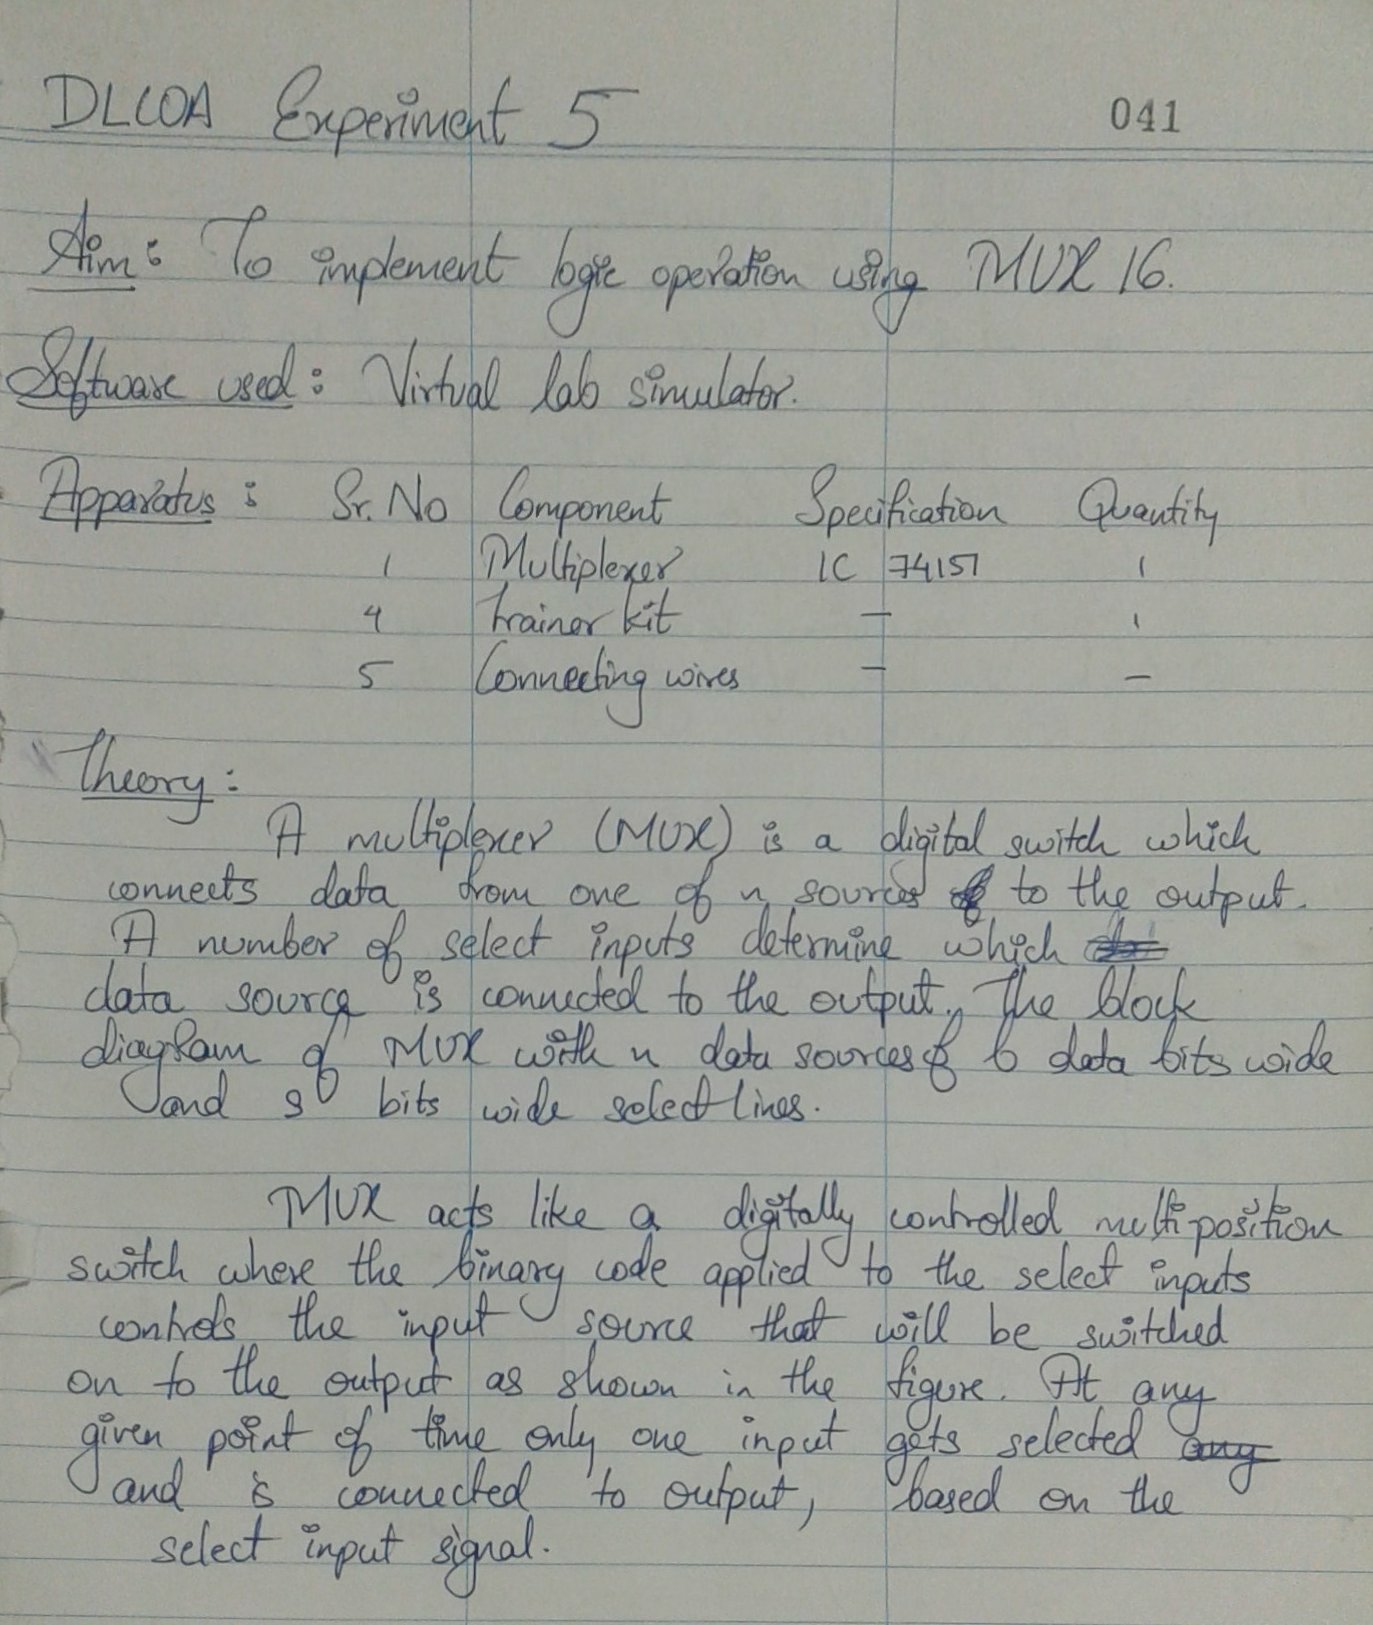 DLCOA Experiment 5 041
Aim: To implement logic operation using MUX 16.
Software used: Virtual lab simulator.
Apparatus: Sr. No Component Specification Quantity
1 Multiplexer IC 74151 1
4 trainer kit — 1
5 Connecting wires — —
Theory:
A multiplexer (MUX) is a digital switch which
connects data from one of n sources to the output.
A number of select inputs determine which
data source is connected to the output. The block
diagram of MUX with n data sources of b data bits wide
and s bits wide select lines.
MUX acts like a digitally controlled multi position
switch where the binary code applied to the select inputs
controls the input source that will be switched
on to the output as shown in the figure. At any
given point of time only one input gets selected any
and is connected to output, based on the
select input signal.